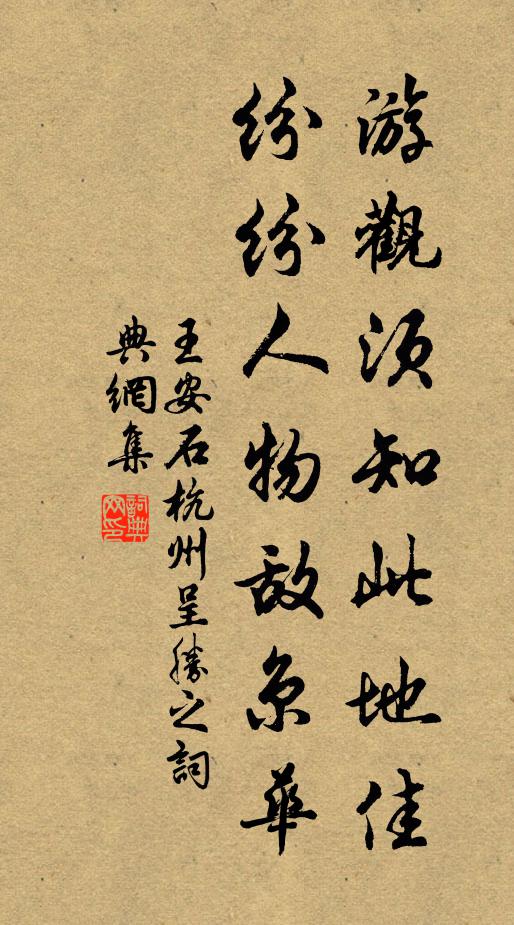 游觀須知此地佳
紛紛人物敌京華
王安石杭州呈勝之詞
典網集
詞典网印